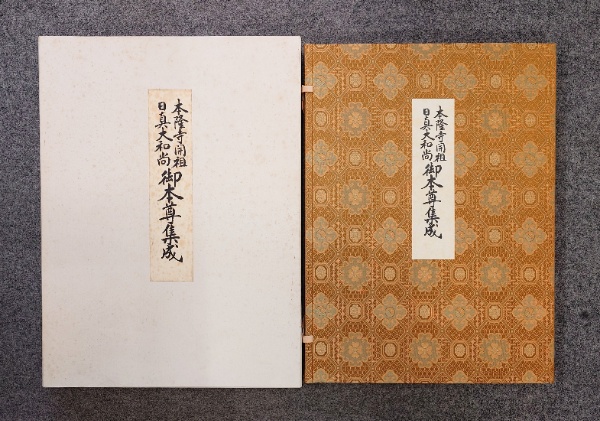 本隆寺開祖
日真大和尚
御本尊集成
本隆寺開祖
日真大和尚
御本尊集成